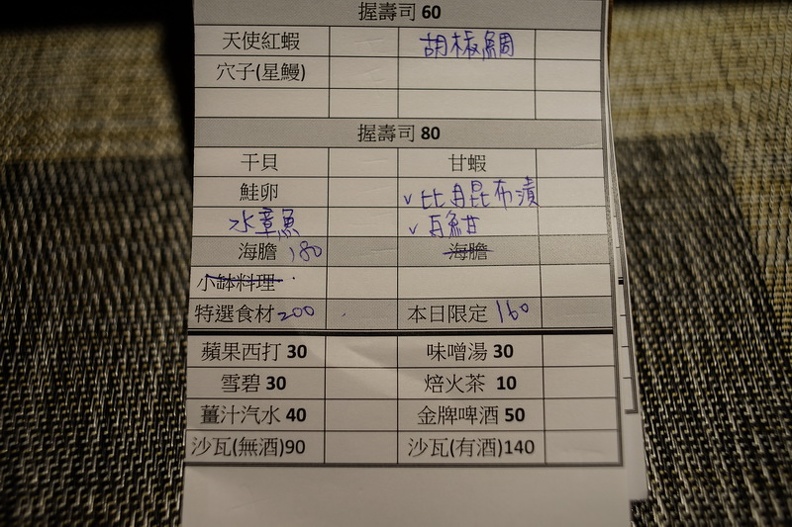 握壽司 60
天使紅蝦 胡椒鯛
穴子(星鰻)
握壽司 80
干貝 甘蝦
鮭卵 ✓比目昆布漬
水章魚 ✓
海膽 180 海膽
小缽料理
特選食材 200 本日限定 160
蘋果西打 30 味噌湯 30
雪碧 30 焙火茶 10
薑汁汽水 40 金牌啤酒 50
沙瓦(無酒)90 沙瓦(有酒)140